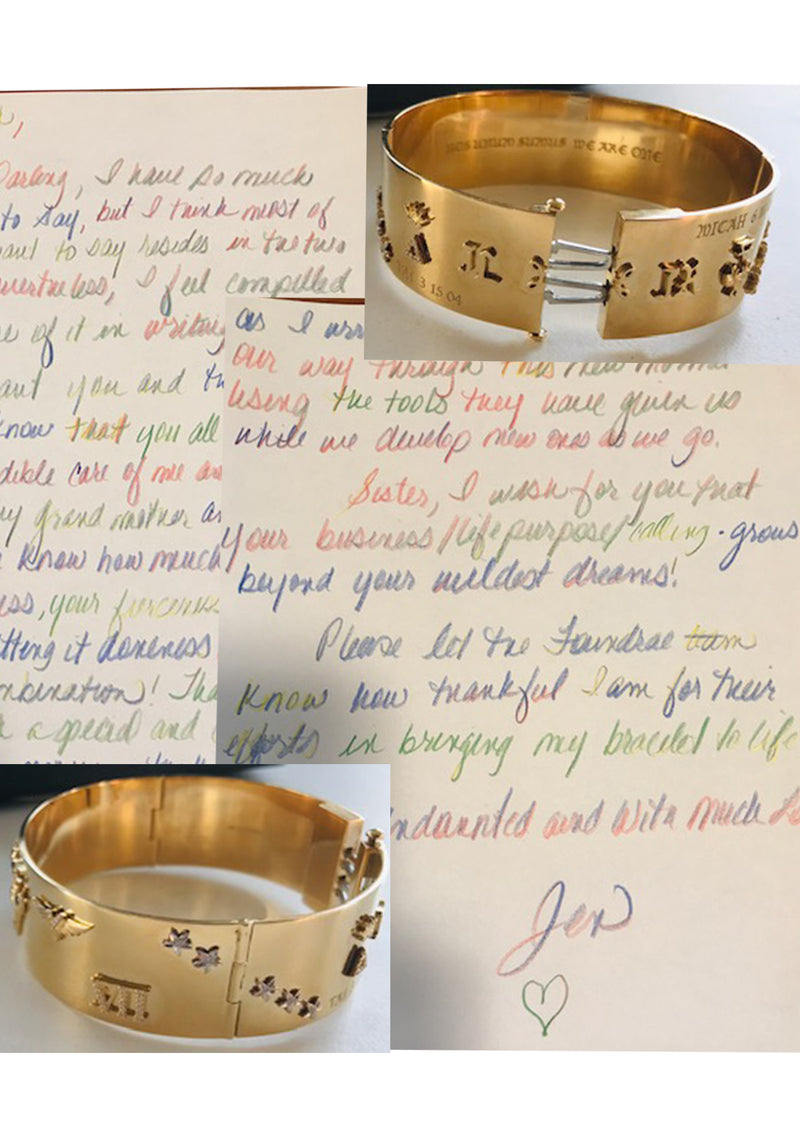 Darling, I have so much
to say, but I think most of
want to say resides in the two
nevertheless, I feel compelled
of it in writing
want you and
know that you all
care of me
my grandmother
know how much
your fierceness
doneness
Tha
a special and
as I
our way through this new normal
using the tools they have given us
while we develop new ones as we go.
Sister, I wish for you that
your business/life purpose/calling - grows
beyond your wildest dreams!
Please let the Foundrae team
know how thankful I am for their
efforts in bringing my bracelet to life
Undaunted and With Much
Jen
NOS UNUM SUMUS WE ARE ONE
MICAH 6
3 15 04
JL
VII